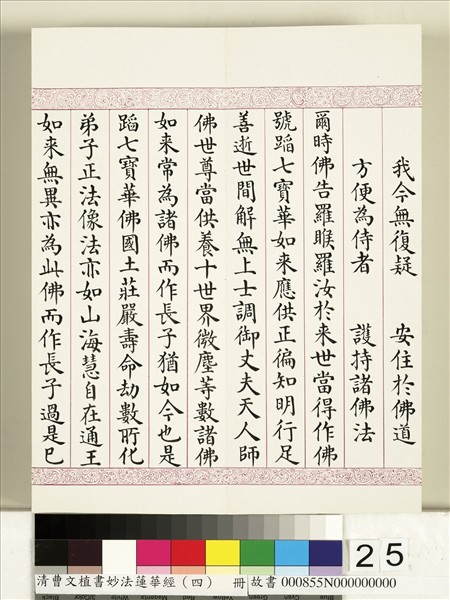 我今無復疑　安住於佛道
方便為侍者　護持諸佛法
爾時佛告羅睺羅汝於来世當得作佛
號蹈七寶華如来應供正徧知明行足
善逝世間解無上士調御丈夫天人師
佛世尊當供養十世界微塵等數諸佛
如来常為諸佛而作長子猶如今也是
蹈七寶華佛國土莊嚴壽命劫數所化
弟子正法像法亦如山海慧自在通王
如来無異亦為此佛而作長子過是已
25
清曹文植書妙法蓮華經（四）　冊 故書 000855N000000000